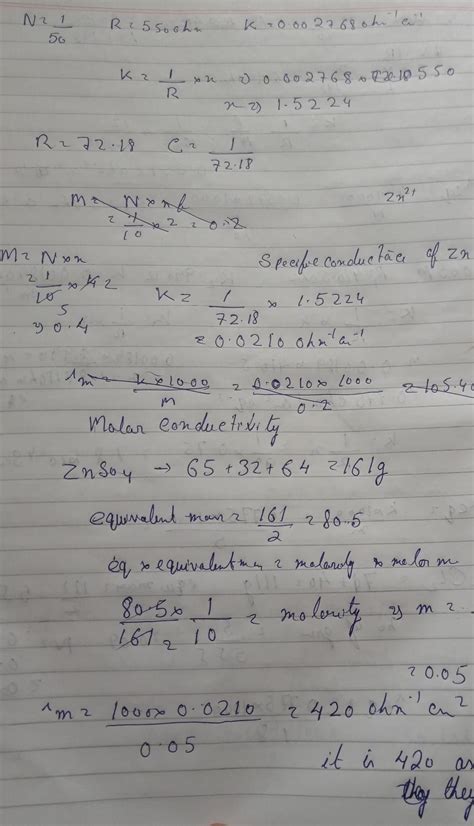 N = 1/50 R = 550 ohm K = 0.002768 ohm⁻¹ cm⁻¹
K = 1/R × x ⇒ 0.002768 × 550
x ⇒ 1.5224
R = 72.18 C = 1/72.18
M = N × x
= 1/10 × 2 = 0.2
Zn²⁺
M = N × x
Specific conductance of Zn
= 1/10 × 4 2
5
⇒ 0.4
K = 1/72.18 × 1.5224
= 0.0210 ohm⁻¹ cm⁻¹
λm = K × 1000/M = 0.0210 × 1000/0.2 = 105.40
Molar conductivity
ZnSO4 → 65 + 32 + 64 = 161g
equivalent mass = 161/2 = 80.5
eq × equivalent mass = molarity × molar m
80.5 × 1/161 2 10 = molarity ⇒ m =
= 0.05
λm = 1000 × 0.0210/0.05 = 420 ohm⁻¹ cm²
it is 420 as
they